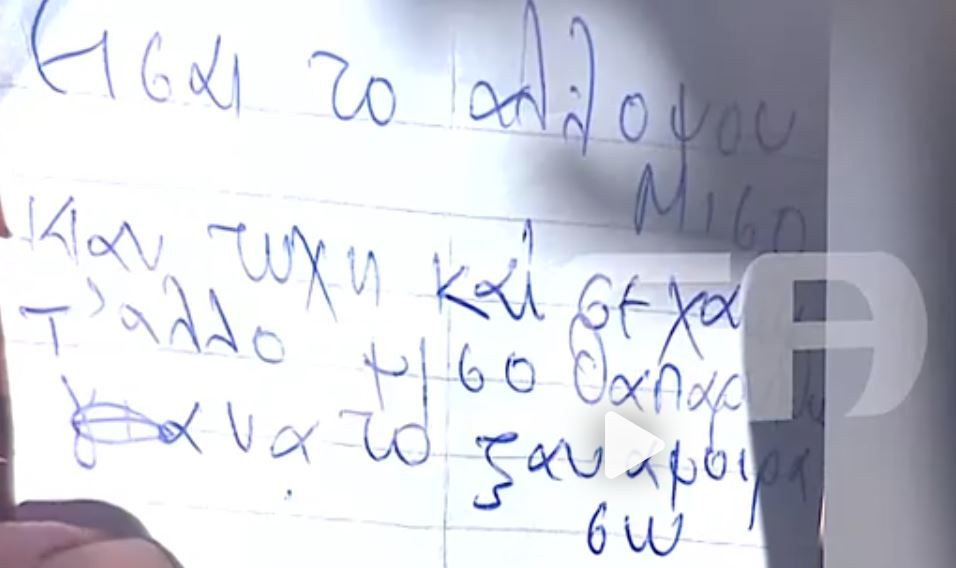 Εισαι το αλλο μου
Μισο
Κι αν τυχη και σε χα
τ'αλλο μισο θα παρ
για να το ξαναμοιρα
σω